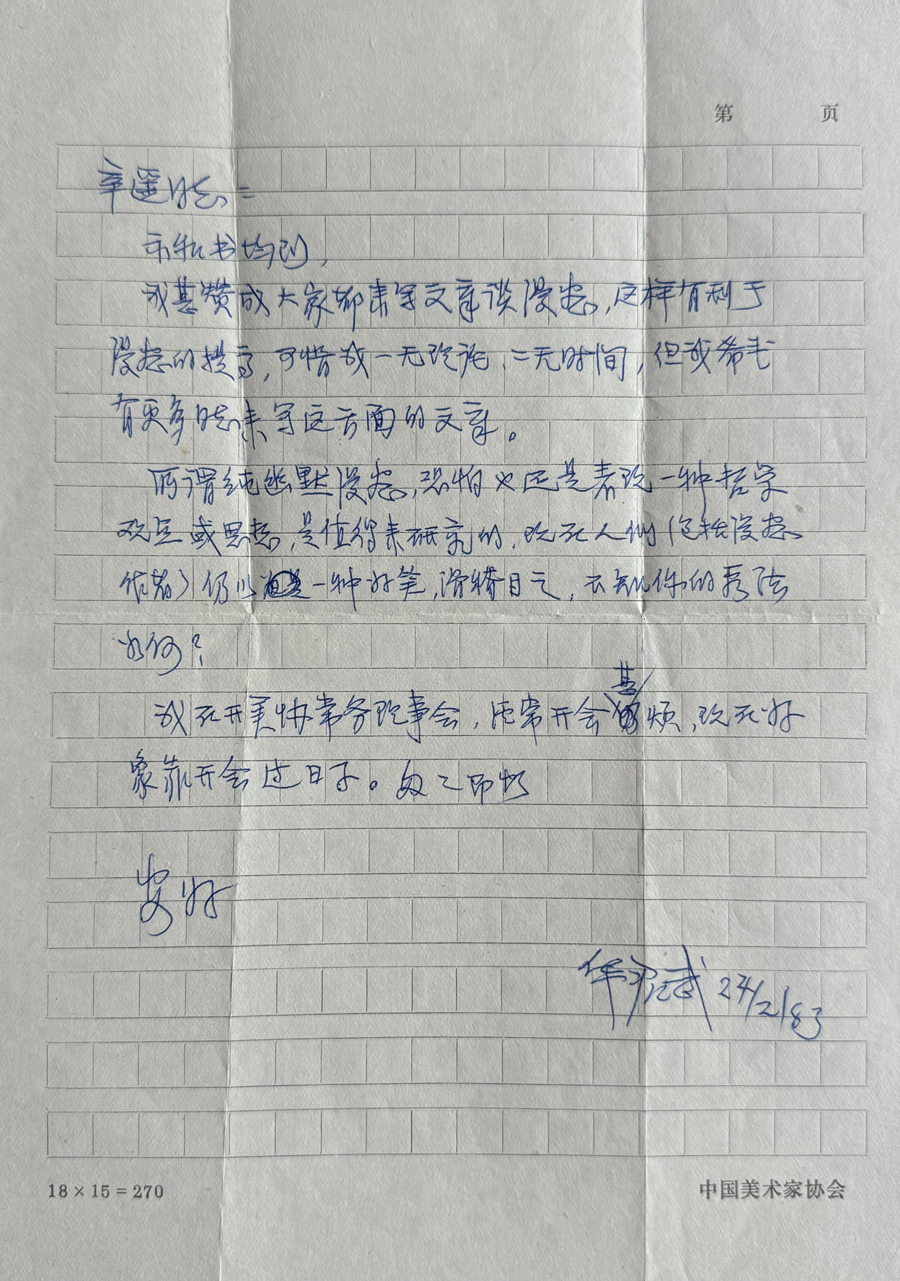 第 页
辛遥同志：
示和书均到，
我甚赞成大家都来写文章谈漫画，这样有利于
漫画的提高，可惜我一无理论，二无时间，但我希望
有更多同志来写这方面的文章。
所谓纯幽默漫画，恐怕也还是表现一种哲学
观点或思想，是值得来研究的，现在人们（包括漫画
作者）仍以一种好笔，滑稽目之，不知你的看法
如何？
我在开美协常务理事会，经常开会甚烦，现在好
象靠开会过日子。匆匆即祝
安好
华君武 24/2/83
18×15=270
中国美术家协会